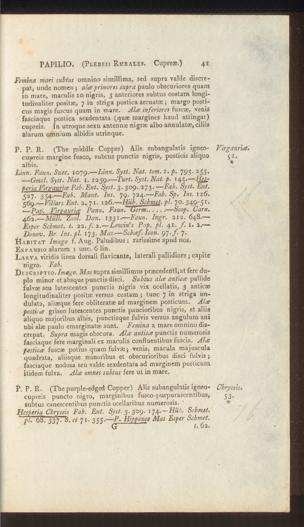 PAPILIO. (PLEBEII RURALES. Cupreæ.) 41
Femina mari subtus omnino simillima, sed supra valde discre-
pat, unde nomen; alæ primores supra paulo obscuriores quam
in mare, maculis 10 nigris, 3 anteriores subtus costam longi-
tudinaliter positæ, 7 in striga postica arcuatæ; margo posti-
cus magis fuscus quam in mare. Alæ inferiores fuscæ, venis
fasciaque postica sexdentata (quæ margines haud attingat)
cupreis. In utroque sexu antennæ nigræ albo annulatæ, ciliis
alarum omnium albidis utrinque.
P. P. R. (The middle Copper) Alis subangulatis igneo-
cupreis margine fusco, subtus punctis nigris, posticis aliquo
albis.
Virgaureæ.
52.
Linn. Faun. Suec. 1079.—Linn. Syst. Nat. tom. 2. p. 793. 253.
—Gmel. Syst. Nat. 1. 2359.—Turt. Syst. Nat. p. 145.—Hes-
peria Virgaureæ Fab. Ent. Syst. 3. 309. 273.—Fab. Syst. Ent.
527. 354.—Fab. Mant. Ins. 79. 724.—Fab. Sp. Ins. 126.
569.—Villars Ent. 2. 71. 126.—Hüb. Schmet. pl. 70. 349-51.
—Pap. Virgaureæ Panz. Faun. Germ. .... —Scop. Carn.
462.—Müll. Zool. Dan. 1331.—Faun. Ingr. 212. 648.—
Esper Schmet. t. 22. f. 2.—Lewin's Pap. pl. 41. f. 1. 2.—
Donov. Br. Ins. pl. 173. Mas.—Schæf. Icon. 97. f. 7.
HABITAT Imago f. Aug. Paludibus; rarissime apud nos.
EXPANSIO alarum 1 unc. 6 lin.
LARVA viridis linea dorsali flavicante, lateralI pallidiore; capite
nigro. Fab.
DESCRIPTIO. Imago. Mas supra simillimus præcedenti, at fere du-
plo minor et absque punctis disci. Subtus alæ anticæ pallide
fulvæ aut lutescentes punctis nigris vix ocellatis, 3 anticæ
longitudinaliter positæ versus costam; tunc 7 in striga un-
dulata, aliæque fere obliteratæ ad marginem posticum. Alæ
posticæ griseo lutescentes punctis paucioribus nigris, et aliis
aliquo majoribus albis, punctisque fulvis versus angulum ani
ubi alæ paulo emarginatæ sunt. Femina a mare omnino dis-
crepat. Supra magis obscura. Alæ anticæ punctis numerosis
fasciaque fere marginali ex maculis confluentibus fusca. Alæ
posticæ fuscæ potius quam fulvæ; venis, macula majuscula
quadrata, aliisque minoribus et obscurioribus disci fulvis;
fasciaque nodosa seu valde sexdentata ad marginem posticum
itidem fulva. Alæ omnes subtus fere ut in mare.
P. P. R. (The purple-edged Copper) Alis subangulatis igneo-
cupreis puncto nigro, marginibus fusco-purpurascentibus,
subtus canescentibus punctis ocellaribus numerosis.
Chryseis.
53.
Hesperia Chryseis Fab. Ent. Syst. 3. 309. 174.—Hüb. Schmet.
pl. 68. 337. 8. et 71. 355.—P. Hipponoe Mas Esper Schmet.
G t. 62.